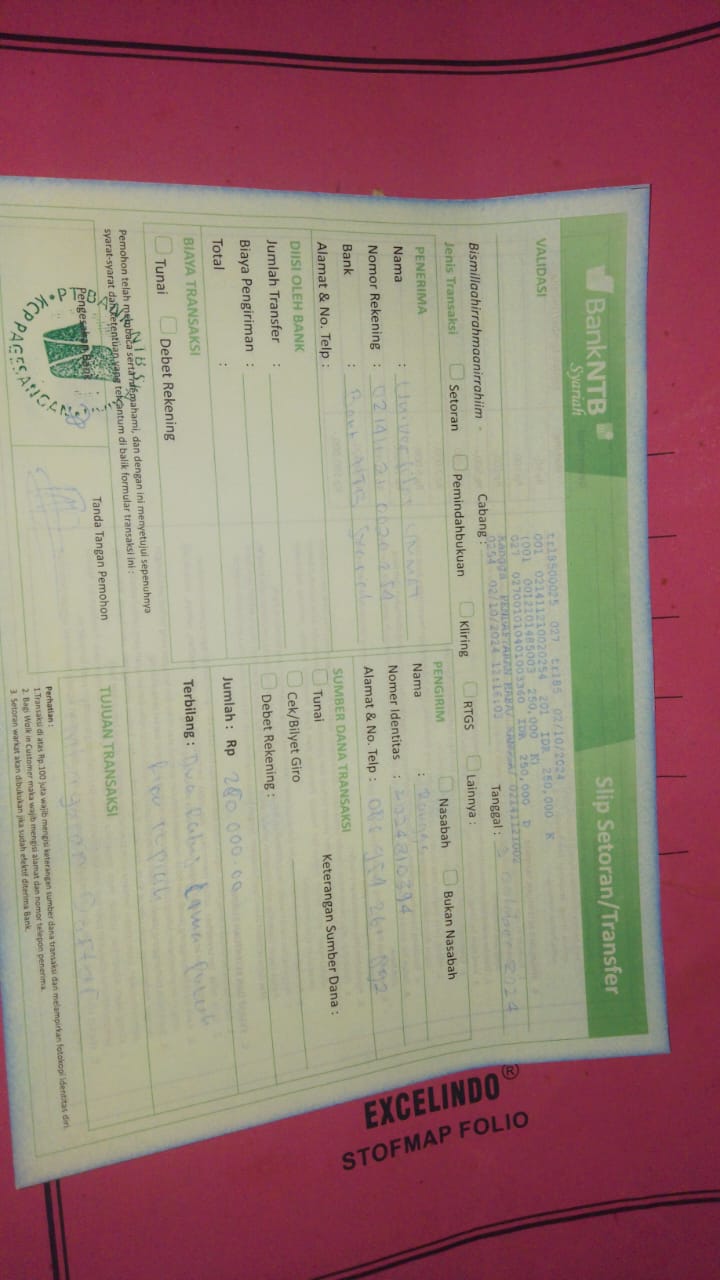 BankNTB
Syariah
Slip Setoran/Transfer
VALIDASI
tr18500025 027 tr185 02/10/2024
001 021411210020254 701 IDR 250,000 K
(001 0012201485003 250,000 K)
027 027001010401003360 IDR 250,000 D
PENDAFTARAN 02141121002
0254 02/10/2024 12:16:03
Bismillaahirrahmaanirrahiim
Cabang :
Tanggal : 2024
Jenis Transaksi
Setoran
Pemindahbukuan
Kliring
RTGS
Lainnya :
PENERIMA
Nama :
Nomor Rekening :
Bank : Bank NTB Syariah
Alamat & No. Telp :
PENGIRIM
Nasabah
Bukan Nasabah
Nama :
Nomer Identitas :
Alamat & No. Telp :
DIISI OLEH BANK
Jumlah Transfer :
Biaya Pengiriman :
Total :
SUMBER DANA TRANSAKSI
Tunai
Keterangan Sumber Dana :
Cek/Bilyet Giro
Debet Rekening :
BIAYA TRANSAKSI
Tunai
Debet Rekening
Jumlah : Rp 250.000.00
Terbilang : Dua Ratus Lima Puluh
Ribu rupiah
Pemohon telah membaca serta memahami, dan dengan ini menyetujui sepenuhnya
syarat-syarat dan ketentuan yang tercantum di balik formular transaksi ini :
Pengesahan Bank
Tanda Tangan Pemohon
TUJUAN TRANSAKSI
PT BANK NTB
KCP PAGESANGAN
Perhatian :
1.Transaksi di atas Rp.100 juta wajib mengisi keterangan sumber dana transaksi dan melampirkan fotokopi identitas diri.
2. Bagi Wolk in Customer maka wajib mengisi alamat dan nomor telepon penerima.
3. Setoran warkat akan dibukukan jika sudah efektif diterima Bank.
EXCELINDO®
STOFMAP FOLIO